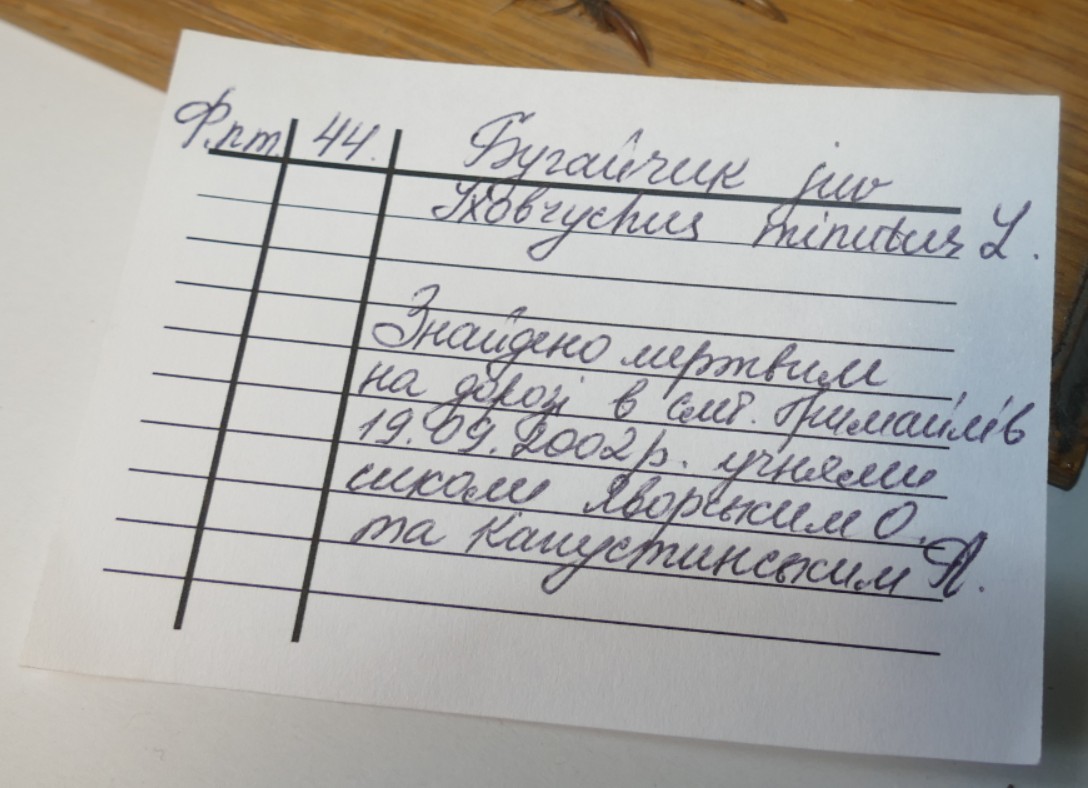 Ф.пт. 44. Бугайчик juv
Ixobrychus minutus L.
Знайдено мертвим
на дорозі в смт. Гримайлів
19.09.2002р. учнями
школи Яворським О.
та Капустинським Я.